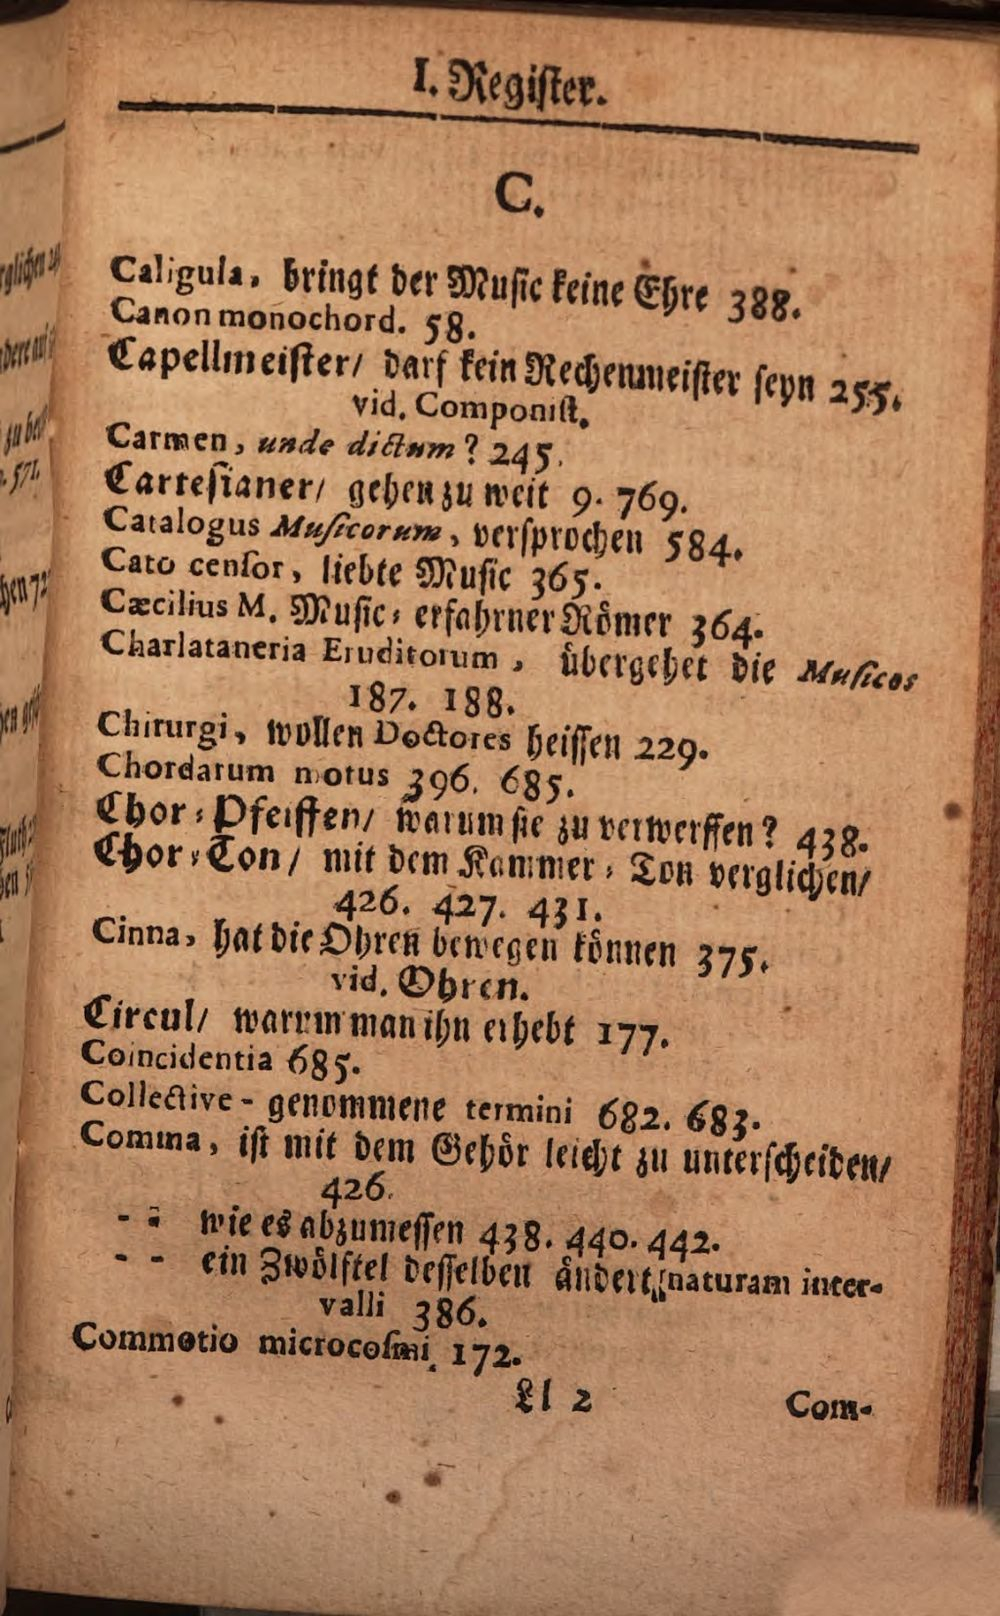 I. Regiſter.
C.
Caligula, bringt der Muſic keine Ehre 388.
Canon monochord. 58.
Capellmeiſter/ darf kein Rechenmeiſter ſeyn 255.
vid. Componiſt.
Carmen, unde dictum? 245.
Carteſianer/ gehen zu weit 9. 769.
Catalogus Muſicorum, verſprochen 584.
Cato cenſor, liebte Muſic 365.
Cæcilius M. Muſic⸗ erfahrner Roͤmer 364.
Charlataneria Eruditorum, uͤbergehet die Muſicos
187. 188.
Chirurgi, wollen Doctores heiſſen 229.
Chordarum motus 396. 685.
Chor⸗Pfeiffen/ warum ſie zu verwerffen? 438.
Chor⸗Ton/ mit dem Kammer⸗Ton verglichen/
426. 427. 431.
Cinna, hat die Ohren bewegen koͤnnen 375.
vid. Ohren.
Circul/ warum man ihn erhebt 177.
Coincidentia 685.
Collective- genommene termini 682. 683.
Comma, iſt mit dem Gehoͤr leicht zu unterſcheiden/
426.
- - wie es abzumeſſen 438. 440. 442.
- - ein Zwoͤlftel deſſelben aͤndert naturam inter-
valli 386.
Commotio microcoſmi 172.
Ll 2
Com-